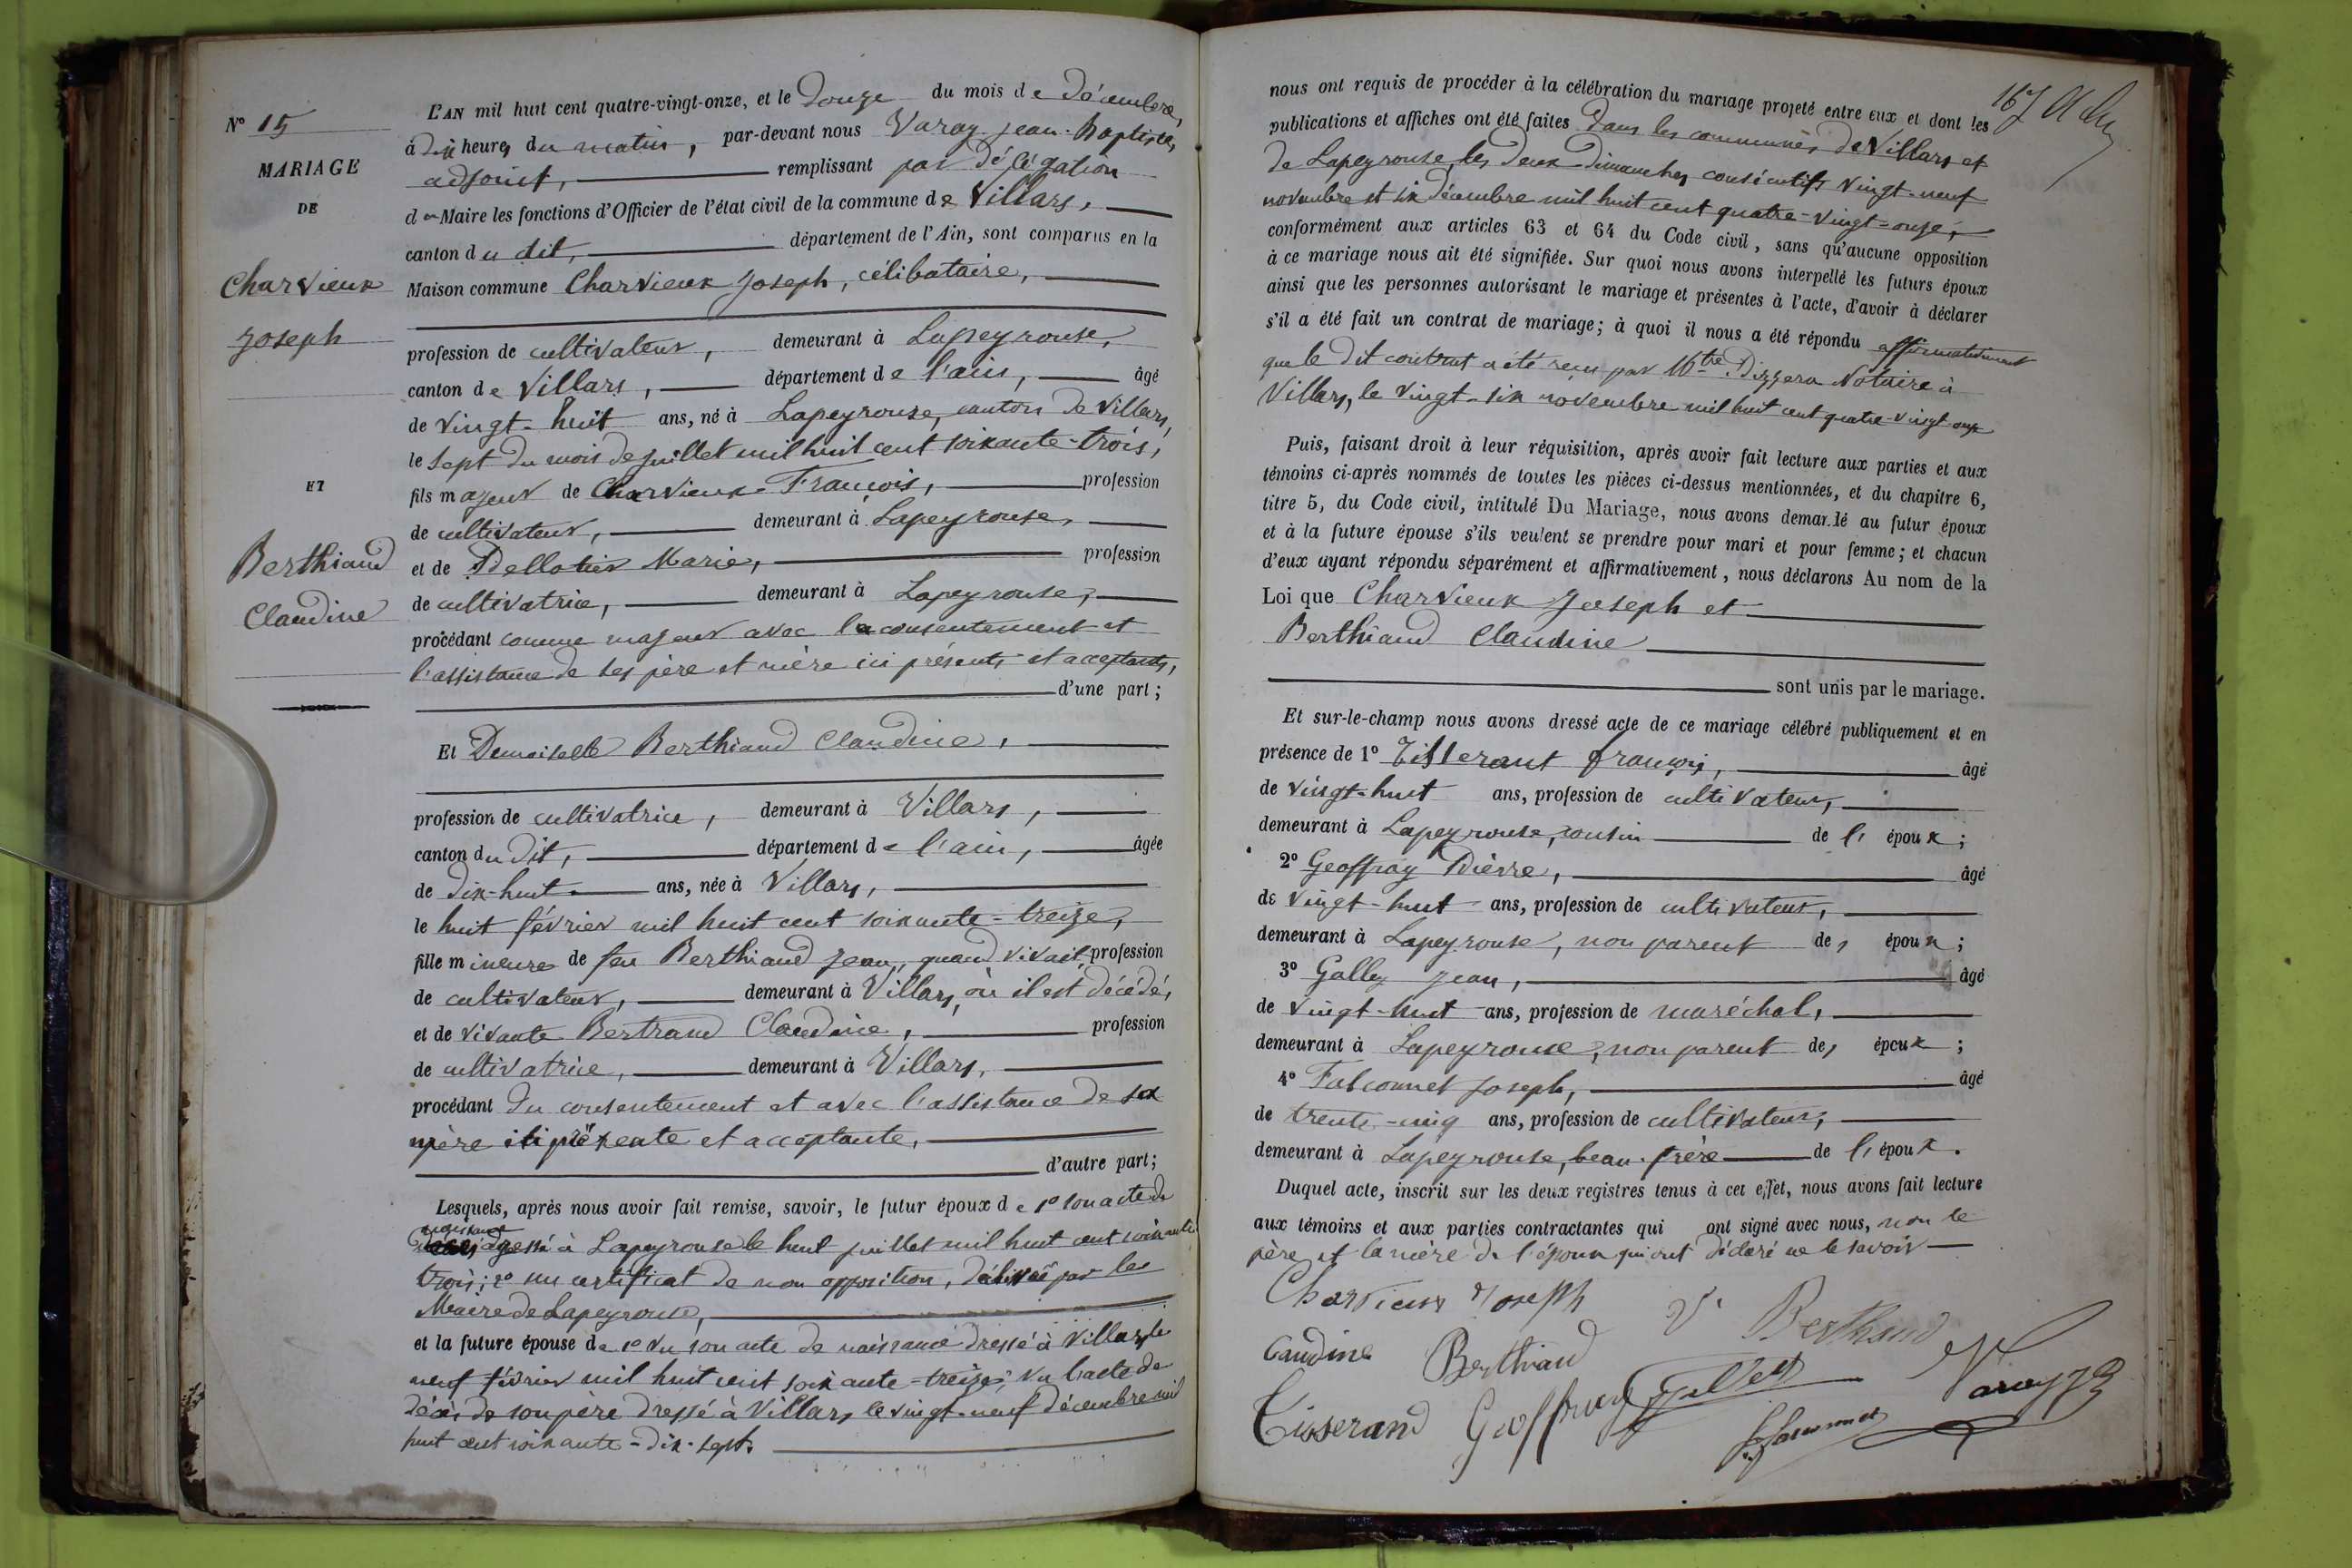 N° 15
MARIAGE
DE
Charvieux
Joseph
ET
Berthiaud
Claudine
L'AN mil huit cent quatre-vingt-onze, et le douze du mois de décembre,
à dix heures du matin, par-devant nous Varay Jean-Baptiste,
adjoint, remplissant par délégation
du Maire les fonctions d'Officier de l'état civil de la commune de Villars,
canton du dit, département de l'Ain, sont comparus en la
Maison commune Charvieux Joseph, célibataire,
profession de cultivateur, demeurant à Lapeyrouse,
canton de Villars, département de l'ain, âgé
de vingt-huit ans, né à Lapeyrouse, canton de Villars,
le sept du mois de juillet mil huit cent soixante-trois,
fils majeur de Charvieux François, profession
de cultivateur, demeurant à Lapeyrouse,
et de Marie, profession
de cultivatrice, demeurant à Lapeyrouse,
procédant comme majeur avec le consentement et
l'assistance de ses père et mère ici présents et acceptants,
d'une part;
Et Demoiselle Berthiaud Claudine,
profession de cultivatrice, demeurant à Villars,
canton du dit, département de l'ain, âgée
de dix-huit ans, née à Villars,
le huit février mil huit cent soixante-treize,
fille mineure de feu Berthiaud Jean, quand vivait, profession
de cultivateur, demeurant à Villars, où il est décédé,
et de vivante Bertrand Claudine, profession
de cultivatrice, demeurant à Villars,
procédant du consentement et avec l'assistance de sa
mère ici présente et acceptante,
d'autre part;
Lesquels, après nous avoir fait remise, savoir, le futur époux de 1° son acte de
naissance
dressé à Lapeyrouse le huit juillet mil huit cent soixante
trois; 2° un certificat de non opposition, délivré par le
Maire de Lapeyrouse,
et la future épouse de 1° vu son acte de naissance dressé à Villars le
neuf février mil huit cent soixante-treize, vu l'acte de
décès de son père dressé à Villars le vingt-neuf décembre mil
huit cent soixante-dix-sept.
167
nous ont requis de procéder à la célébration du mariage projeté entre eux et dont les
publications et affiches ont été faites dans les communes de Villars et
de Lapeyrouse les deux dimanches consécutifs vingt-neuf
novembre et six décembre mil huit cent quatre-vingt-onze,
conformément aux articles 63 et 64 du Code civil, sans qu'aucune opposition
à ce mariage nous ait été signifiée. Sur quoi nous avons interpellé les futurs époux
ainsi que les personnes autorisant le mariage et présentes à l'acte, d'avoir à déclarer
s'il a été fait un contrat de mariage; à quoi il nous a été répondu affirmativement
que le dit contrat a été reçu par Mtre Notaire à
Villars, le vingt-six novembre mil huit cent quatre-vingt-onze
Puis, faisant droit à leur réquisition, après avoir fait lecture aux parties et aux
témoins ci-après nommés de toutes les pièces ci-dessus mentionnées, et du chapitre 6,
titre 5, du Code civil, intitulé Du Mariage, nous avons demandé au futur époux
et à la future épouse s'ils veulent se prendre pour mari et pour femme; et chacun
d'eux ayant répondu séparément et affirmativement, nous déclarons Au nom de la
Loi que Charvieux Joseph et
Berthiaud Claudine
sont unis par le mariage.
Et sur-le-champ nous avons dressé acte de ce mariage célébré publiquement et en
présence de 1° Tisserant françois, âgé
de vingt-huit ans, profession de cultivateur,
demeurant à Lapeyrouse, cousin de l' époux;
2° Geoffray Pierre, âgé
de vingt-huit ans, profession de cultivateur,
demeurant à Lapeyrouse, non parent des époux;
3° Galley Jean, âgé
de vingt-huit ans, profession de maréchal,
demeurant à Lapeyrouse, non parent des époux;
4° Falconnet Joseph, âgé
de trente-cinq ans, profession de cultivateur,
demeurant à Lapeyrouse, beau-frère de l'époux.
Duquel acte, inscrit sur les deux registres tenus à cet effet, nous avons fait lecture
aux témoins et aux parties contractantes qui ont signé avec nous, non le
père et la mère de l'époux qui ont déclaré ne le savoir
Charvieux Joseph Ve Berthiaud
Caudine Berthiaud
Tisserand Geoffray